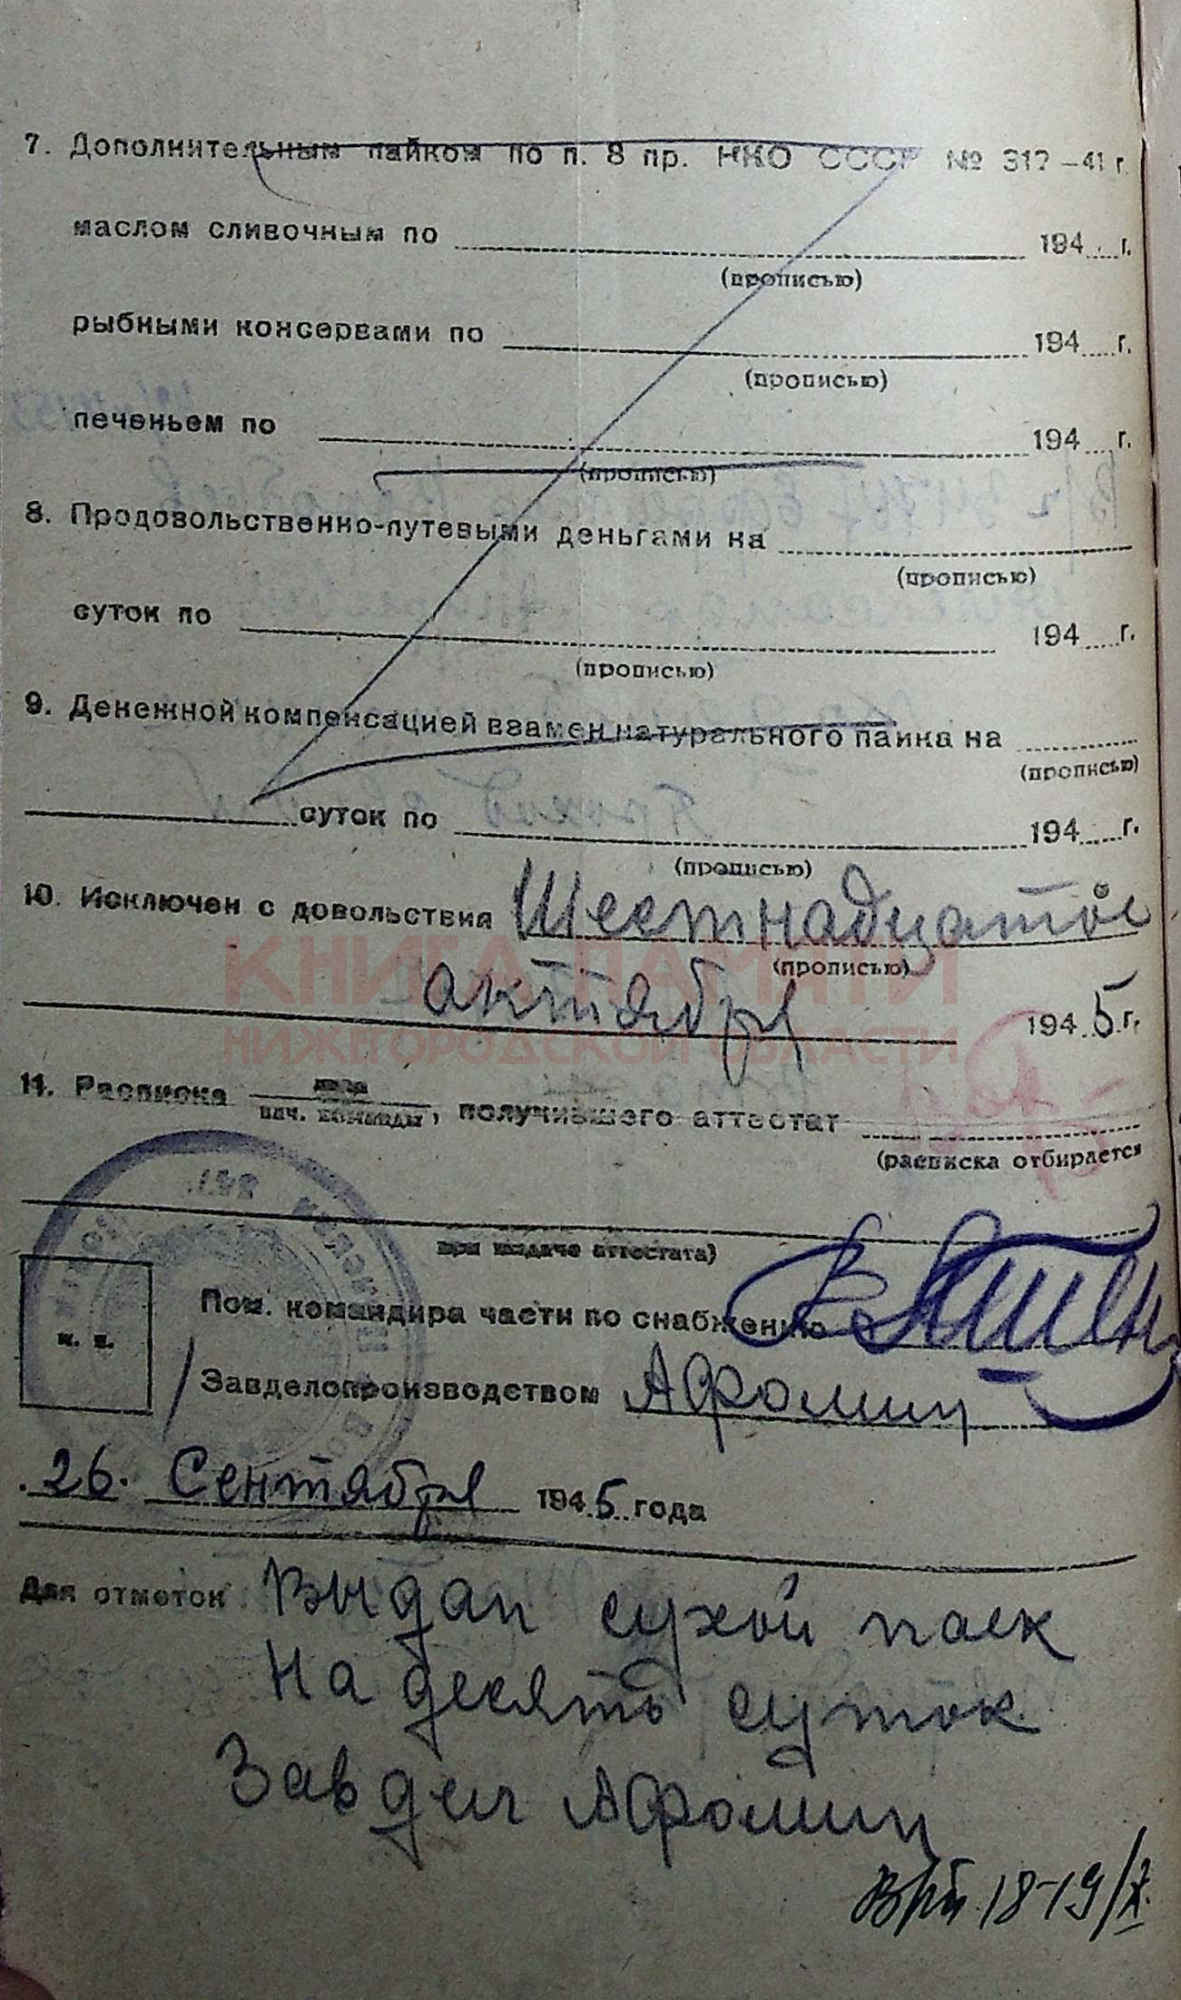 7. Дополнительным пайком по п. 8 пр. НКО СССР № 312 –41 г.
маслом сливочным по 194 г.
(прописью)
рыбными консервами по 194 г.
(прописью)
печеньем по 194 г.
(прописью)
8. Продовольственно-путевыми деньгами на
(прописью)
суток по 194 г.
(прописью)
9. Денежной компенсацией взамен натурального пайка на
(прописью)
суток по 194 г.
(прописью)
10. Исключен с довольствия Шестнадцатое
(прописью)
актября 1945 г.
КНИГА ПАМЯТИ
НИЖЕГОРОДСКОЙ ОБЛАСТИ
11. Расписка нач. команды, получившего аттестат
(расписка отбирается
при выдаче аттестата)
Пом. командира части по снабжению
м. п.
Завделопроизводством Афромиц
26. Сентября 1945 года
Для отметок Выдан сухой паек
На десять суток
Завдел Афромиц
18-19/X.